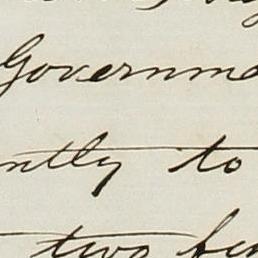 Governme
ntly to
two